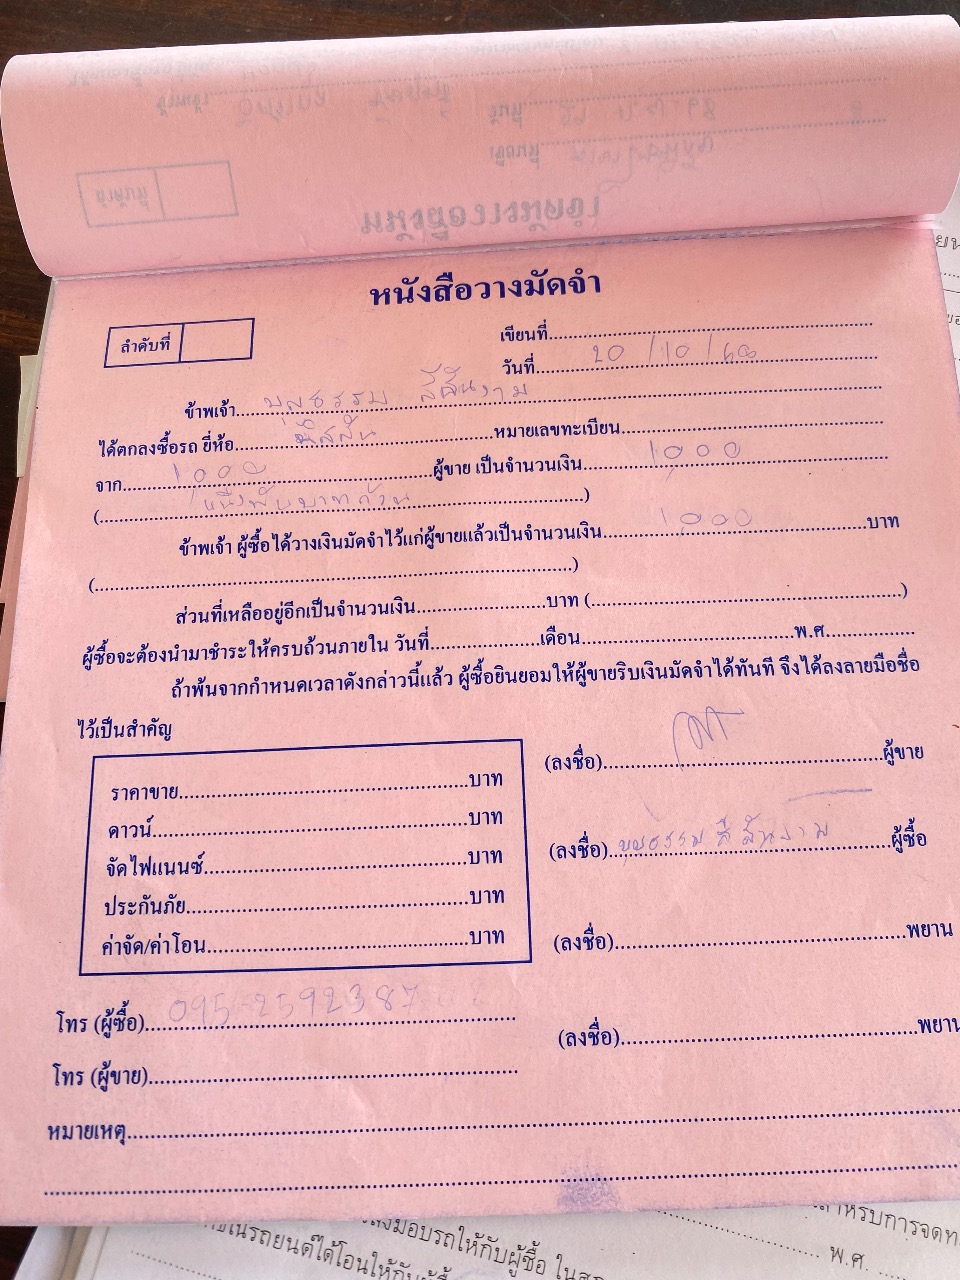 หนังสือวางมัดจำ
ลำดับที่
เขียนที่
วันที่ 20/10/68
ข้าพเจ้า บุญธรรม สีสันงาม
ได้ตกลงซื้อรถ ยี่ห้อ นิสสัน หมายเลขทะเบียน
จาก 1,000 ผู้ขาย เป็นจำนวนเงิน 1,000
(หนึ่งพันบาทถ้วน)
ข้าพเจ้า ผู้ซื้อได้วางเงินมัดจำไว้แก่ผู้ขายแล้วเป็นจำนวนเงิน 1,000 บาท
( )
ส่วนที่เหลืออยู่อีกเป็นจำนวนเงิน บาท ( )
ผู้ซื้อจะต้องนำมาชำระให้ครบถ้วนภายใน วันที่ เดือน พ.ศ.
ถ้าพ้นจากกำหนดเวลาดังกล่าวนี้แล้ว ผู้ซื้อยินยอมให้ผู้ขายริบเงินมัดจำได้ทันที จึงได้ลงลายมือชื่อ
ไว้เป็นสำคัญ
(ลงชื่อ) ผู้ขาย
ราคาขาย บาท
ดาวน์ บาท
(ลงชื่อ) บุญธรรม สีสันงาม ผู้ซื้อ
จัดไฟแนนซ์ บาท
ประกันภัย บาท
ค่าจัด/ค่าโอน บาท
(ลงชื่อ) พยาน
โทร (ผู้ซื้อ) 095-2592387
(ลงชื่อ) พยาน
โทร (ผู้ขาย)
หมายเหตุ
สำหรับการจดท
มอบรถให้กับผู้ซื้อ
พ.ศ.
ในรถยนต์ได้โอนให้กับผู้ซื้อ